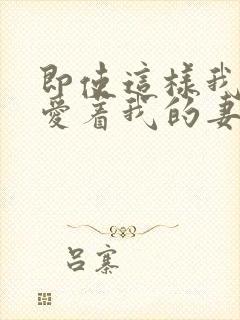 即使這樣我
愛着我的妻
呂寨